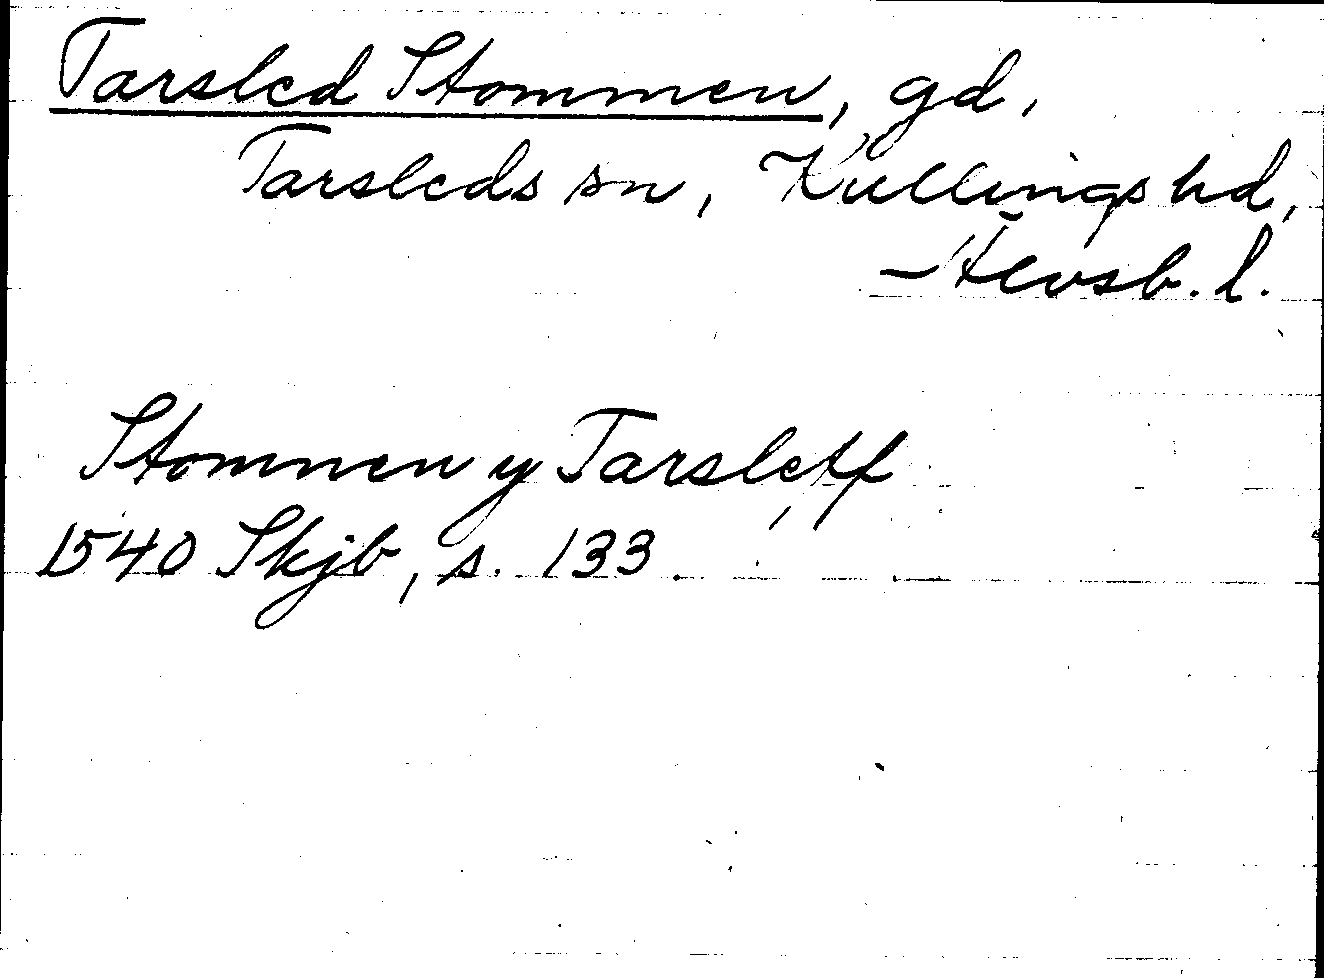 Tarsled Stommen, gd,
Tarsleds sn, Kullings hd,
Älvsb. l.
Stommen y Tarsletf
1540 Skjb, s. 133